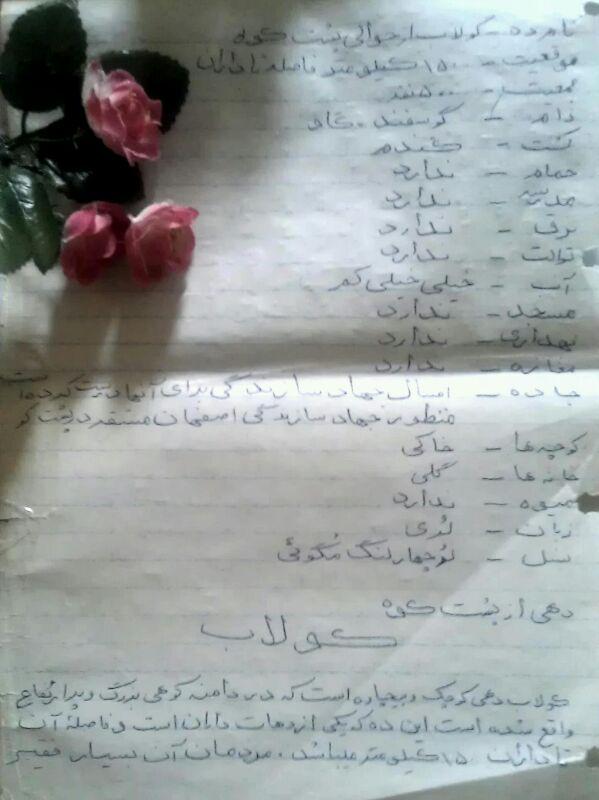 نام ده - کولاب از حوالی پشت کوه
موقعیت - ۱۵۰ کیلومتر فاصله تا داران
جمعیت - ۵۰۰ نفر
دام - گوسفند. گاو
کشت - گندم
حمام - ندارد
مدرسه - ندارد
برق - ندارد
توالت - ندارد
آب - خیلی خیلی کم
مسجد - ندارد
بهداری - ندارد
مغازه - ندارد
جاده - امسال جهاد سازندگی برای آنها درست کرده است
منظور جهاد سازندگی اصفهان مستقر در پشت کو
کوچه‌ها - خاکی
خانه‌ها - گلی
میوه - ندارد
زبان - لُری
نسل - لُر چهارلنگ مُگوئی
دهی از پشت کوه
کولاب
کولاب دهی کوچک و بیچاره است که در دامنه کوهی بزرگ و پر ارتفاع
واقع شده است این ده که یکی از دهات داران است و فاصلهٔ آن
تا داران ۱۵۰ کیلومتر میباشد. مردمان آن بسیار فقیر